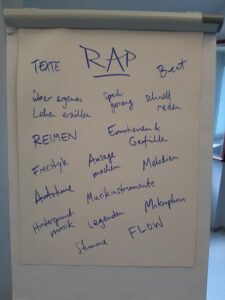 TEXTE RAP Beat
über eigenes Sprech- schnell
Leben erzählen gesang reden
REIMEN Emotionen &
Gefühle
Freestyle Ansage Melodien
machen
Autotune Musikinstrumente
Hintergrund- Legenden Mikrophon
musik
Stimme FLOW